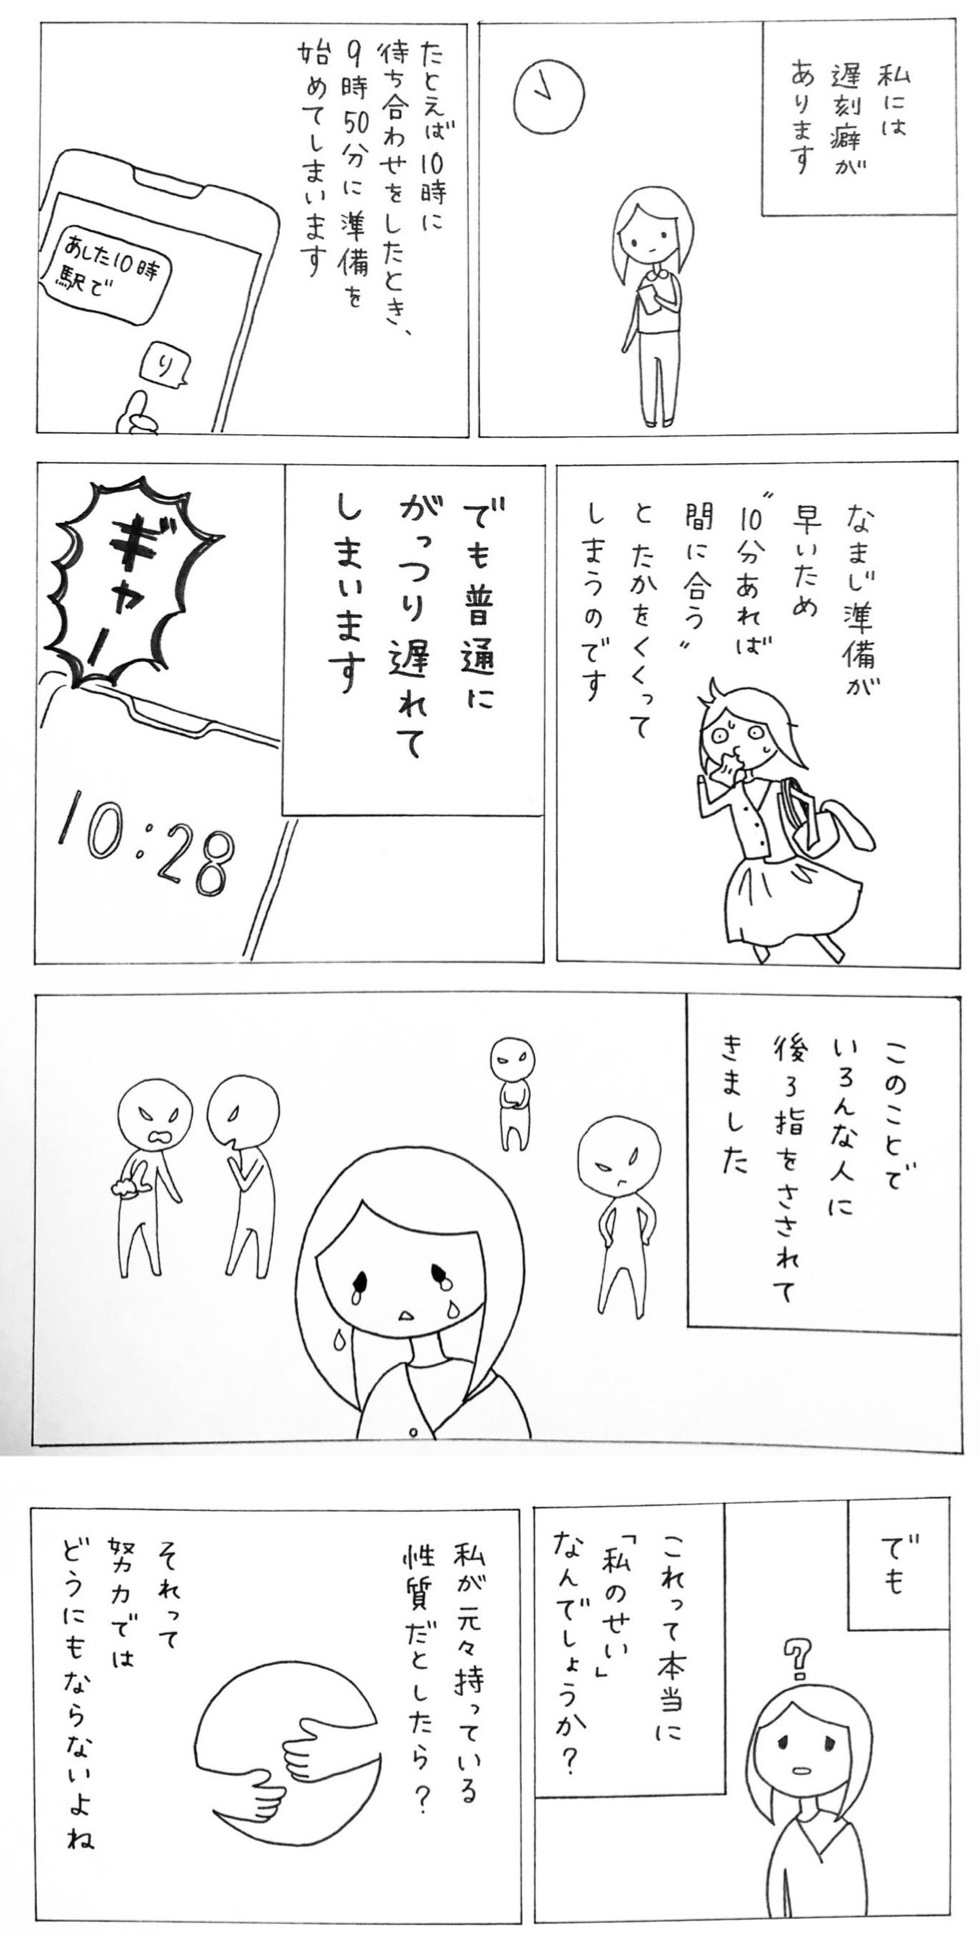 私には
遅刻癖が
あります
たとえば10時に
待ち合わせをしたとき、
9時50分に準備を
始めてしまいます
あした10時
駅で
り
なまじ準備が
早いため
"10分あれば
間に合う"
とたかをくくって
しまうのです
でも普通に
がっつり遅れて
しまいます
ギャー
10:28
このことで
いろんな人に
後ろ指をさされて
きました
でも
?
これって本当に
「私のせい」
なんでしょうか?
私が元々持っている
性質だとしたら?
それって
努力では
どうにもならないよね